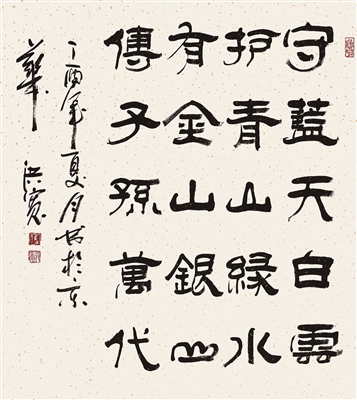 守藍天白雲
护青山緑水
有金山銀山
傳子孫萬代
丁酉年夏月书於京
華 洪寶